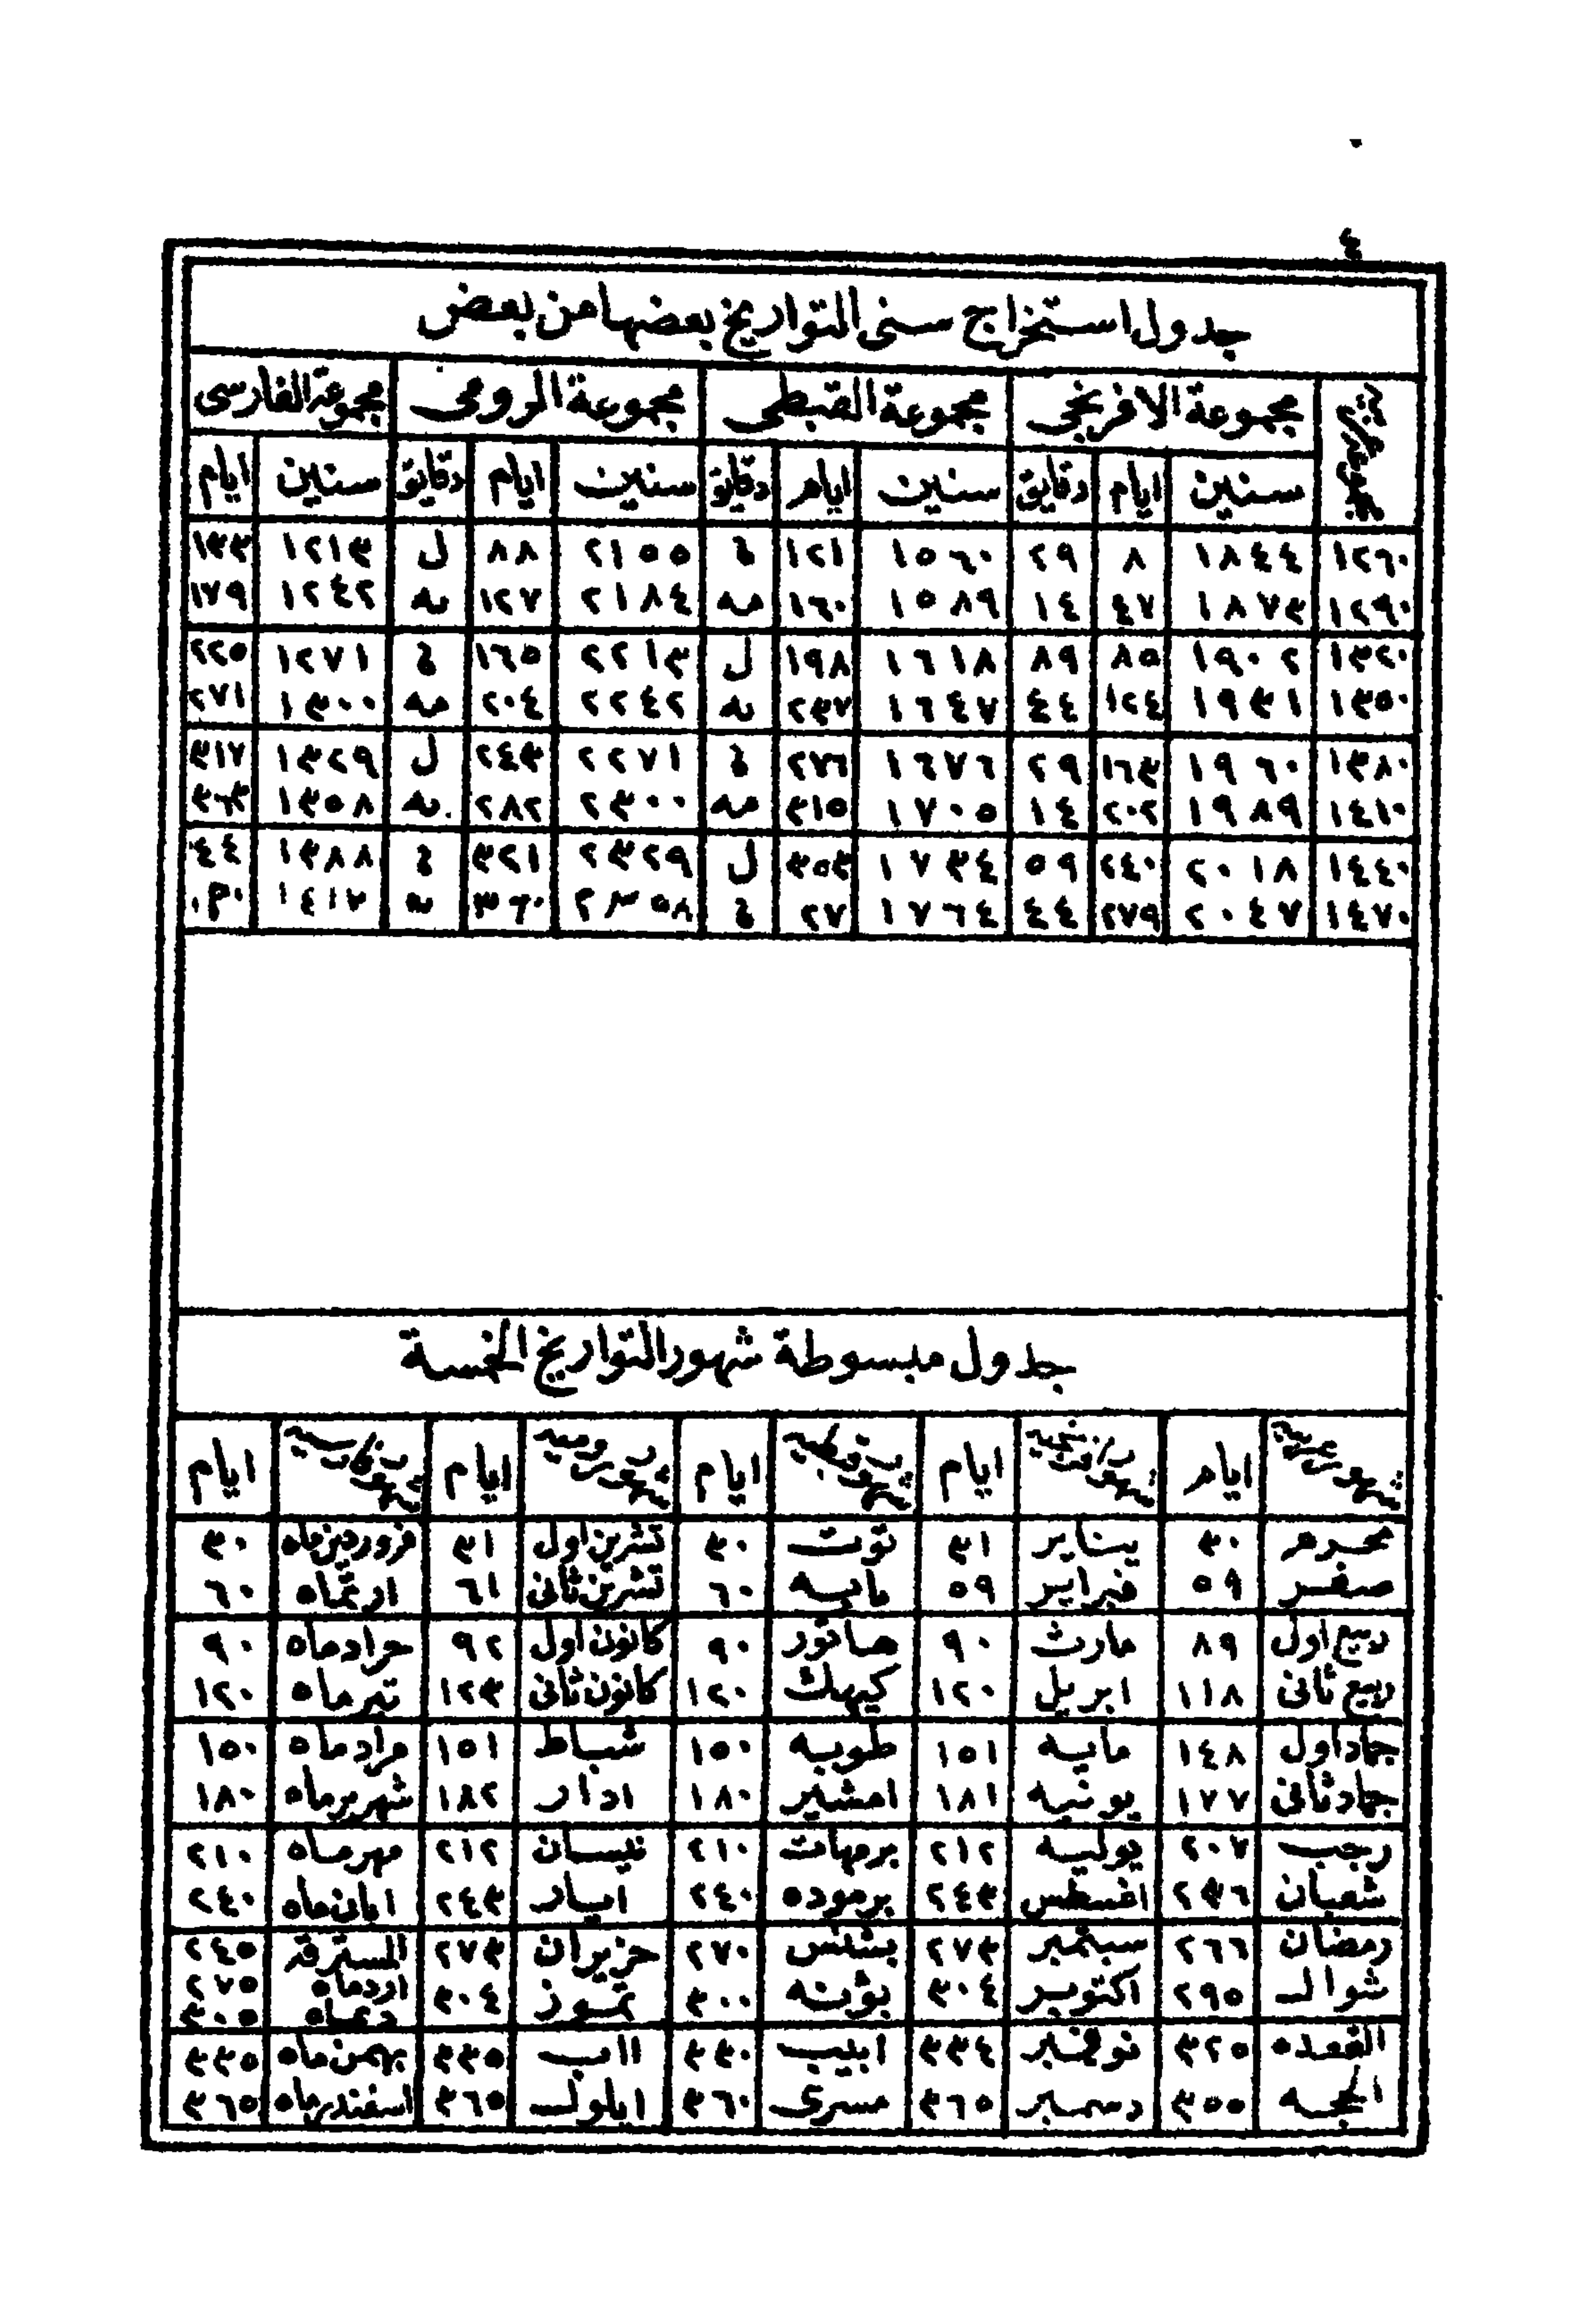 ٤
جدول استخراج سنى التواريخ بعضها من بعض
مجموعة الافرنجي مجموعة القبطى مجموعة الرومى مجموعة الفارسى
سنين ايام دقايق سنين ايام دقايق سنين ايام دقايق سنين ايام
١٢٦٠ ١٨٤٤ ٨ ٢٩ ١٥٦٠ ١٢١ ٢١٥٥ ٨٨ ل ١٢١٣ ١٣٣
١٢٩٠ ١٨٧٣ ٤٧ ١٤ ١٥٨٩ ١٦٠ مه ٢١٨٤ ١٢٧ يه ١٢٤٢ ١٧٩
١٣٢٠ ١٩٠٢ ٨٥ ٨٩ ١٦١٨ ١٩٨ ل ٢٢١٣ ١٦٥ ١٢٧١ ٢٢٥
١٣٥٠ ١٩٣١ ١٢٤ ٤٤ ١٦٤٧ ٢٣٧ يه ٢٢٤٢ ٢٠٤ مه ١٣٠٠ ٢٧١
١٣٨٠ ١٩٦٠ ١٦٣ ٢٩ ١٦٧٦ ٢٧٦ ٢٢٧١ ٢٤٣ ل ١٣٢٩ ٣١٧
١٤١٠ ١٩٨٩ ٢٠٢ ١٤ ١٧٠٥ ٣١٥ مه ٢٣٠٠ ٢٨٢ يه ١٣٥٨ ٣٦٣
١٤٤٠ ٢٠١٨ ٢٤٠ ٥٩ ١٧٣٤ ٣٥٣ ل ٢٣٢٩ ٣٢١ ١٣٨٨ ٤٤
١٤٧٠ ٢٠٤٧ ٢٧٩ ٤٤ ١٧٦٤ ٢٧ ٢٣٥٨ ٣٦٠ يه ١٤١٧
جدول مبسوطة شهور التواريخ الخمسة
شهور عربية ايام شهور افرنجية ايام شهور قبطية ايام شهور رومية ايام شهور فارسية ايام
محرم ٣٠ يناير ٣١ توت ٣٠ تشرين اول ٣١ فروردين ماه ٣٠
صفر ٥٩ فبراير ٥٩ بابيه ٦٠ تشرين ثانى ٦١ اردتماه ٦٠
ربيع اول ٨٩ مارث ٩٠ هاتور ٩٠ كانون اول ٩٢ حرادماه ٩٠
ربيع ثانى ١١٨ ابريل ١٢٠ كيهك ١٢٠ كانون ثانى ١٢٣ تيرماه ١٢٠
جماد اول ١٤٨ مايه ١٥١ طوبه ١٥٠ شباط ١٥١ مرادماه ١٥٠
جماد ثانى ١٧٧ يونيه ١٨١ امشير ١٨٠ ادار ١٨٢ شهريرماه ١٨٠
رجب ٢٠٧ يوليه ٢١٢ برمهات ٢١٠ نيسان ٢١٢ مهرماه ٢١٠
شعبان ٢٣٦ اغسطس ٢٤٣ برموده ٢٤٠ ايار ٢٤٣ ابان ماه ٢٤٠
رمضان ٢٦٦ سبتمبر ٢٧٣ بشنس ٢٧٠ حزيران ٢٧٣ المسترقه ٢٤٥
شوال ٢٩٥ اكتوبر ٣٠٤ بؤنه ٣٠٠ تموز ٣٠٤ اردماه ٢٧٥
ديماه ٣٠٥
القعده ٣٢٥ نوفمبر ٣٣٤ ابيب ٣٣٠ ااب ٣٣٥ بهمن ماه ٣٣٥
الحجه ٣٥٥ دسمبر ٣٦٥ مسرى ٣٦٠ ايلول ٣٦٥ اسفندرماه ٣٦٥